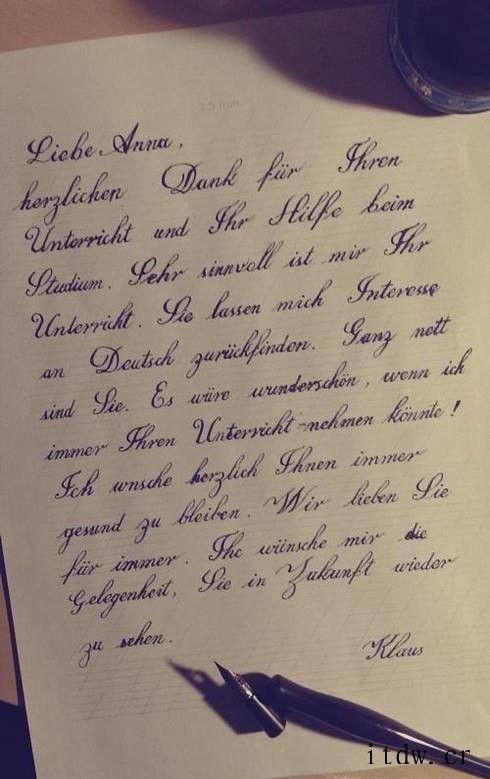 3.5 mm
Liebe Anna,
herzlichen Dank für Ihren
Unterricht und Ihr Hilfe beim
Studium. Sehr sinnvoll ist mir Ihr
Unterricht. Sie lassen mich Interesse
an Deutsch zurückfinden. Ganz nett
sind Sie. Es wäre wunderschön, wenn ich
immer Ihren Unterricht-nehmen könnte!
Ich wnsche herzlich Ihnen immer
gesund zu bleiben. Wir lieben Sie
für immer. Ihc wünsche mir die
Gelegenheit, Sie in Zukunft wieder
zu sehen.
Klaus
itdw.cr